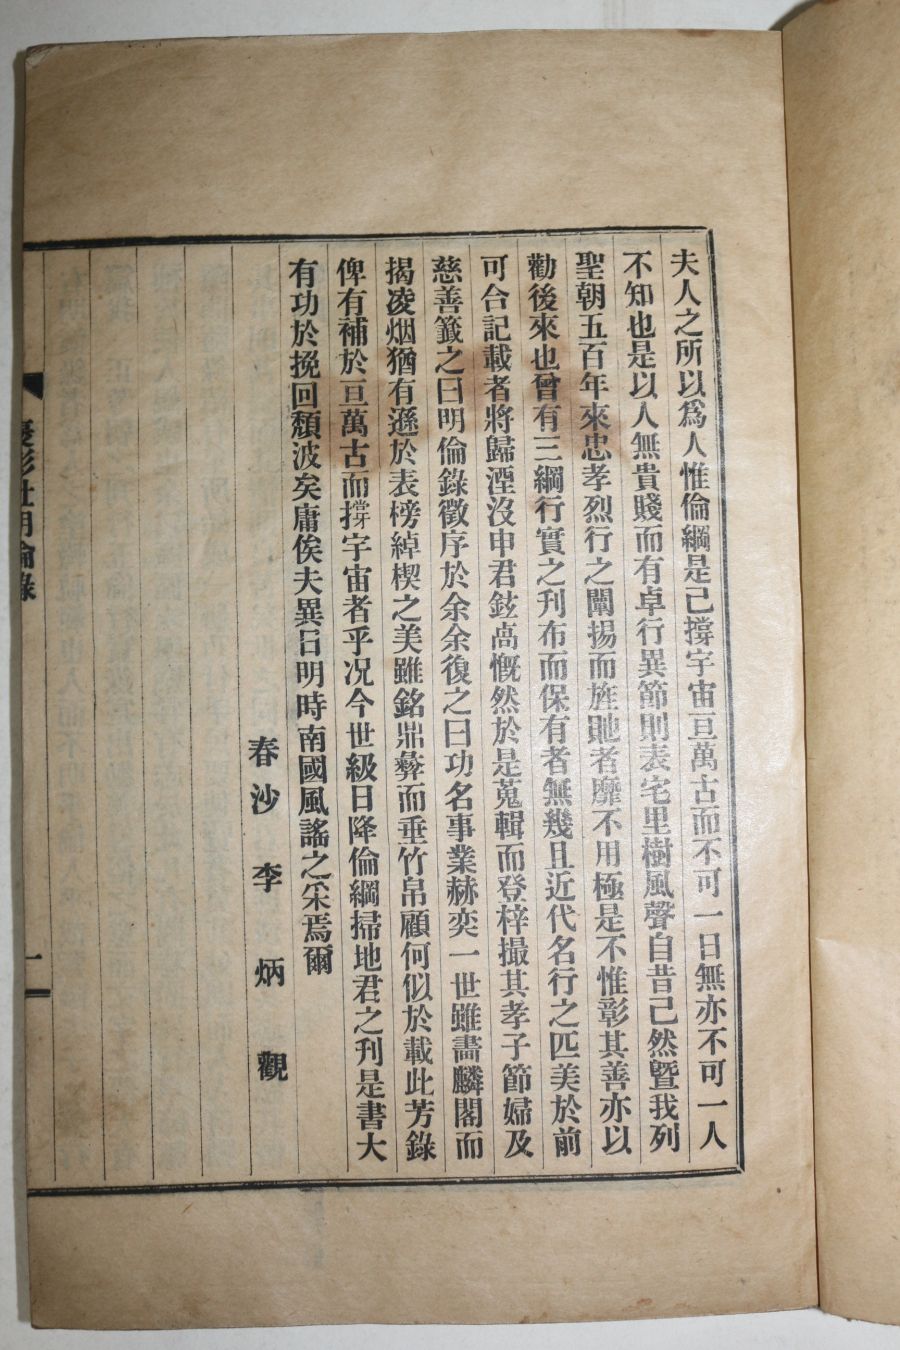 夫人之所以爲人惟倫綱是已撐宇宙亘萬古而不可一日無亦不可一人
不知也是以人無貴賤而有卓行異節則表宅里樹風聲自昔已然曁我列
聖朝五百年來忠孝烈行之闡揚而旌貤者靡不用極是不惟彰其善亦以
勸後來也曾有三綱行實之刊布而保有者無幾且近代名行之匹美於前
可合記載者將歸湮沒申君鉉卨慨然於是蒐輯而登梓撮其孝子節婦及
慈善籤之曰明倫錄徵序於余余復之曰功名事業赫奕一世雖畵麟閣而
揭凌烟猶有遜於表榜綽楔之美雖銘鼎彝而垂竹帛顧何似於載此芳錄
俾有補於亘萬古而撐宇宙者乎况今世級日降倫綱掃地君之刊是書大
有功於挽回頹波矣庸俟夫異日明時南國風謠之采焉爾
春沙 李 炳 觀
彰社明倫錄
一